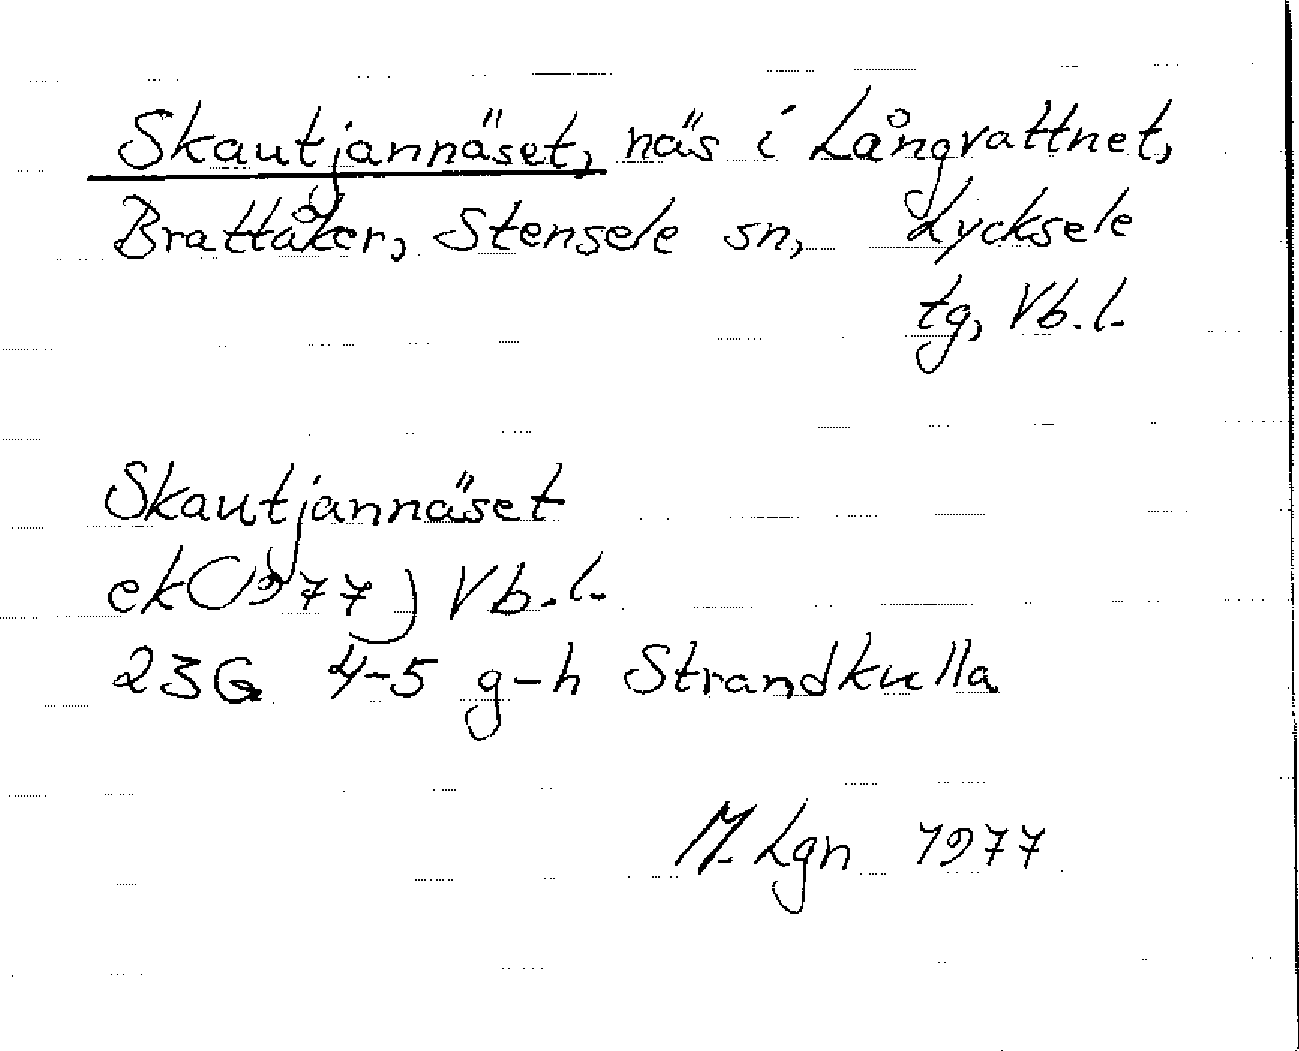 Skautjannäset, näs i Långvattnet,
Brattåker, Stensele sn, Lycksele
tg, Vb.l.
Skautjannäset
ek (1977) Vb.l.
23G 4-5 g-h Strandkulla
M. Lgn 1977